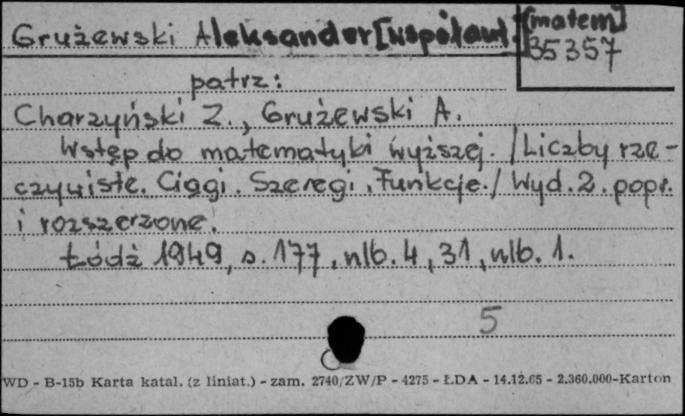 Grużewski Aleksander [współaut.
[matem]
35357
patrz:
Charzyński Z., Grużewski A.
Wstęp do matematyki wyższej. /Liczby rze-
czywiste. Ciągi. Szeregi. Funkcje./ Wyd. 2. popr.
i rozszerzone.
Łódź 1949, s. 177, nlb. 4, 31, nlb. 1.
5
WD - B-15b Karta katal. (z liniat.) - zam. 2740/ZW/P - 4275 - ŁDA - 14.12.65 - 2.360.000-Karton